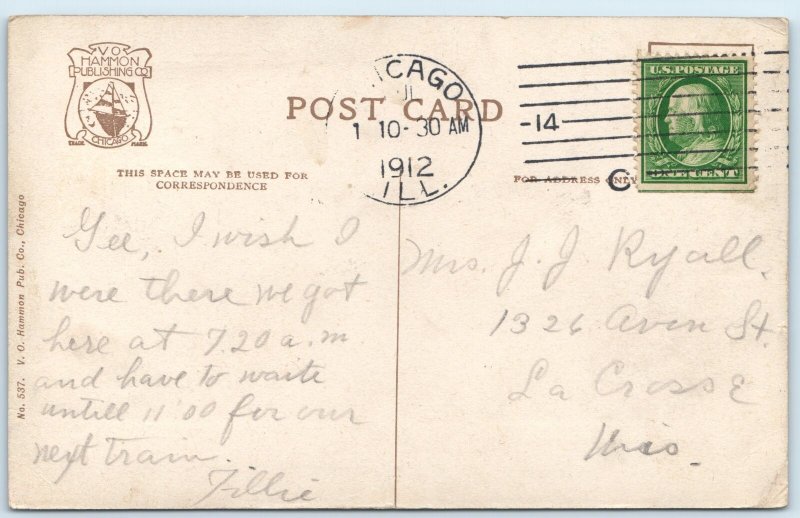 V O
HAMMON
PUBLISHING CO
CHICAGO
TRADE MARK
POST CARD
THIS SPACE MAY BE USED FOR
CORRESPONDENCE
FOR ADDRESS ONLY
ICAGO
1 10-30 AM
1912
ILL.
-14
C
U.S. POSTAGE
ONE CENT
No. 537. V. O. Hammon Pub. Co., Chicago
Gee, I wish I
were there we got
here at 7.20 a.m
and have to waite
untill 11 00 for our
next train.
Tillie
Mrs. J. J. Ryall.
1326 Avon St.
La Crosse
Wis.